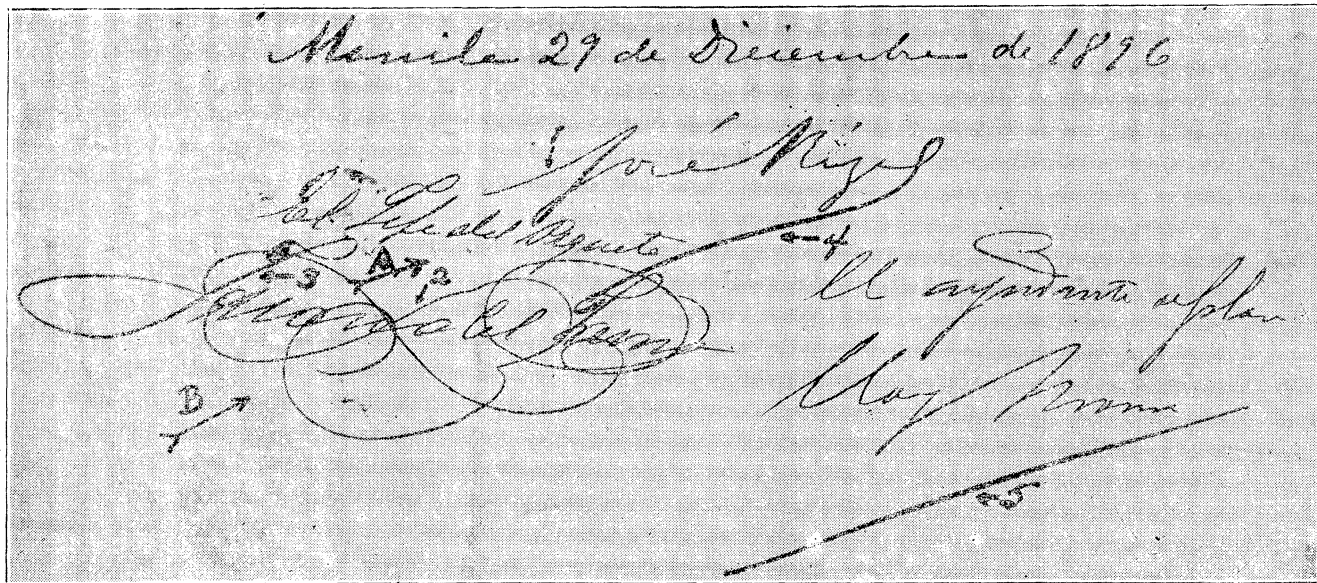 Manila 29 de Diciembre de 1896
José Rizal
El Jefe del Piquete
A
2
3
4
Juan del Fresno
El ayudante de plaza
Eloy Moure
B
5